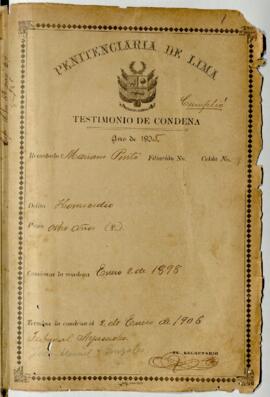 PENITENCIARIA DE LIMA
Cumplió
TESTIMONIO DE CONDENA
Año de 1898
Recordado Mariano Pinto Filiación No. Celda No.
Delito Homicidio
Pena ocho años (8)
Comienza la condena Enero 2 de 1898
Termina la condena el 2 de Enero de 1906
Tribunal Ayacucho
EL SECRETARIO